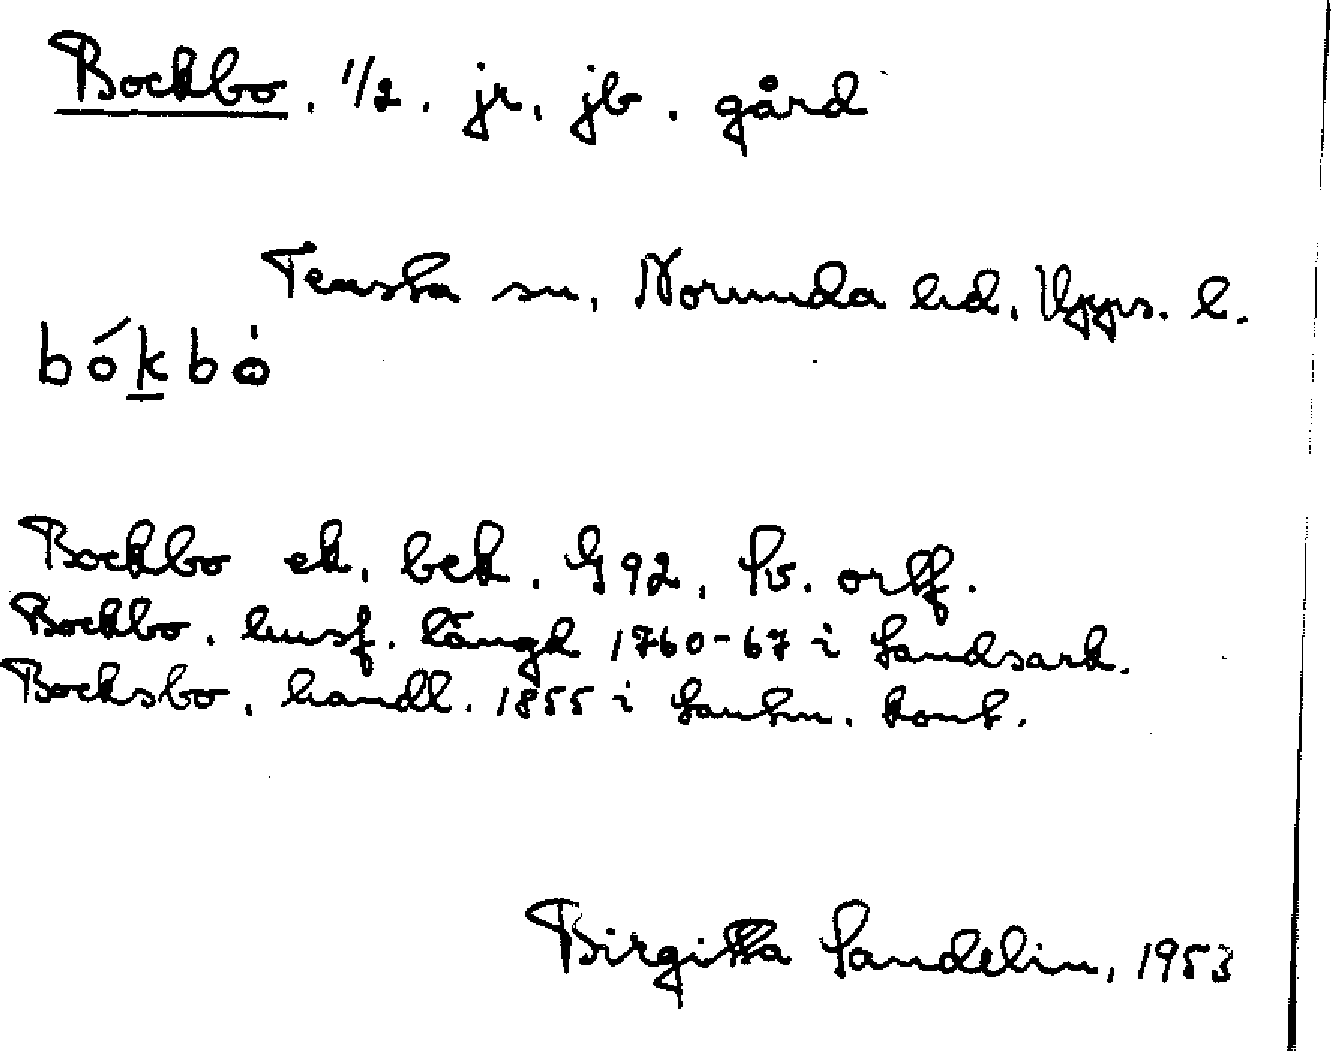 Bockbo. 1/2. jr. jb. gård
Tensta sn, Norunda hd. Upps. l.
bókbò
Bockbo ek. bek. G92. Sv. ortf.
Bockbo. husf. längd 1760-67 i Landsark.
Bocksbo. handl. 1855 i Lantm. kont.
Birgitta Sandelin, 1953